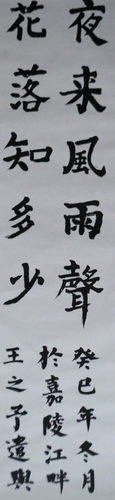 夜来風雨聲
花落知多少
癸巳年冬月
於嘉陵江畔
王之予遣興